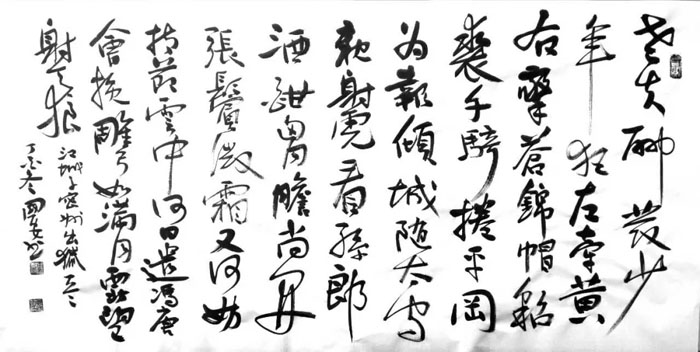 老夫聊發少
年狂左牽黃
右擎蒼錦帽貂
裘千騎捲平岡
为報傾城隨太守
親射虎看孫郎
酒酣胷膽尚開
張鬢微霜又何妨
持節雲中何日遣馮唐
會挽雕弓如滿月西北望
射天狼
江城子密州出獵
丁亥冬